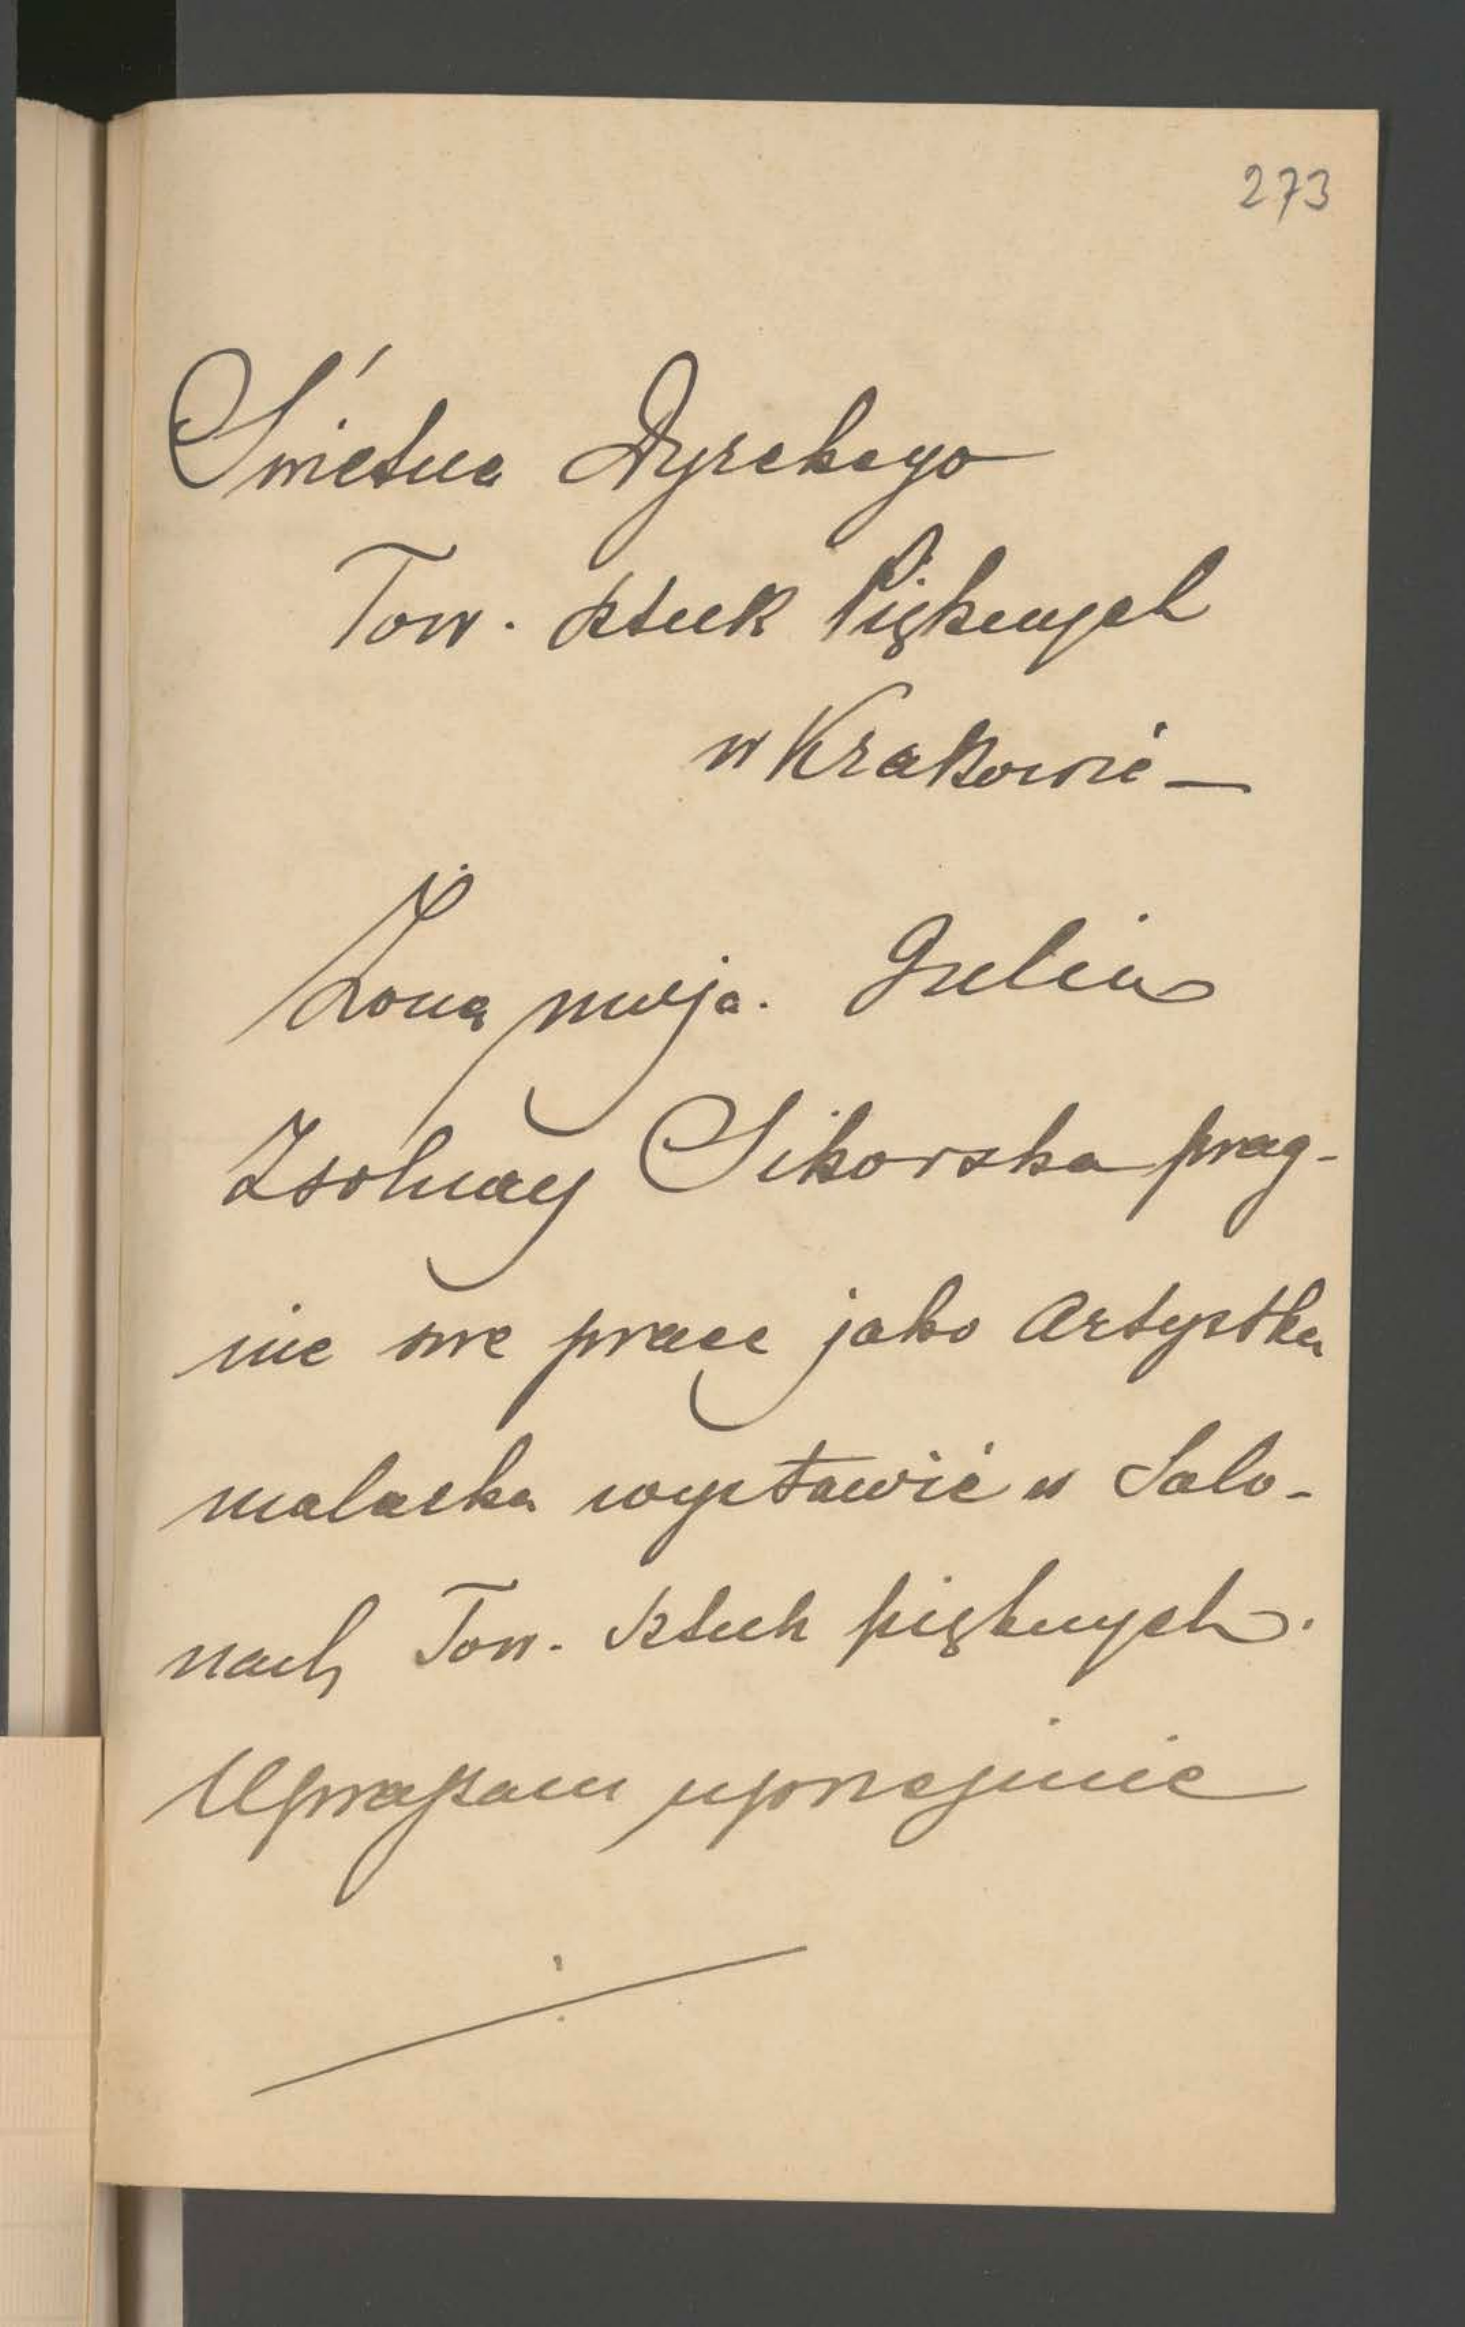 273
Świetna Dyrekcyo
Tow. Sztuk Pięknych
w Krakowie —
Żona moja. Julia
Zsolnay Sikorska prag-
nie swe prace jako Artystka
malarka wystawić w Salo-
nach Tow. Sztuk pięknych.
Upraszam uprzejmie